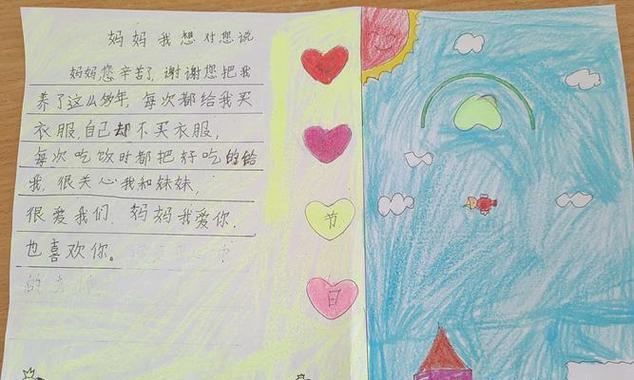 妈妈我想对您说
妈妈您辛苦了,谢谢您把我
养了这么多年,每次都给我买
衣服,自己却不买衣服,
每次吃饭时都把好吃的给
我,很关心我和妹妹,
很爱我们,妈妈我爱你,
也喜欢你。
节
日